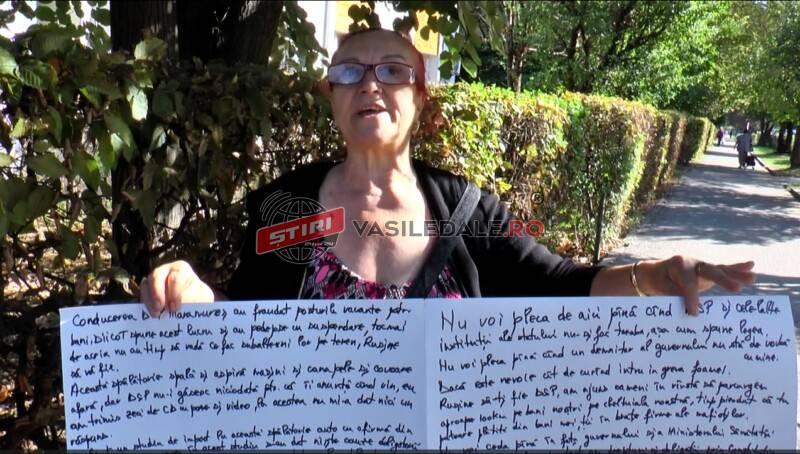 ȘTIRI
VASILEDALE.RO
Conducerea D Maramureș au fraudat posturile vacante ptr.
bani. Diicot spune acest lucru și au pedepse cu suspendare, tocmai
de aceia nu au timp să vadă ce fac subalternii lor pe teren, Rușine
să vă fie.
Această spălătorie spală și aspiră mașini și canapele și covoare
afară, dar DSP nu-i găsesc niciodată ptr. că îi anunță când vin, eu
am trimis zeci de CD cu poze și video, la acestea nu mi-a dat nici un
răspuns.
un studiu de impact la această spălătorie auto ce afirmă din
acest studiu
Nu voi pleca de aici până când DSP și celelalte
instituții ale statului nu-și fac treaba, așa cum spune legea.
Nu voi pleca până când un demnitar al guvernului nu stă de vorbă
cu mine.
Dacă este nevoie cât de curând intru în greva foamei.
Rușine să-ți fie DSP, am ajuns oameni în vârstă să parcurgem
aproape pe bani noștri pe cheltuiala noastră, timp pierdut ca tu
putere plătită din bani noștri în brațe firme ale mafioților.
până în fața guvernului și a Ministerului Sănătății